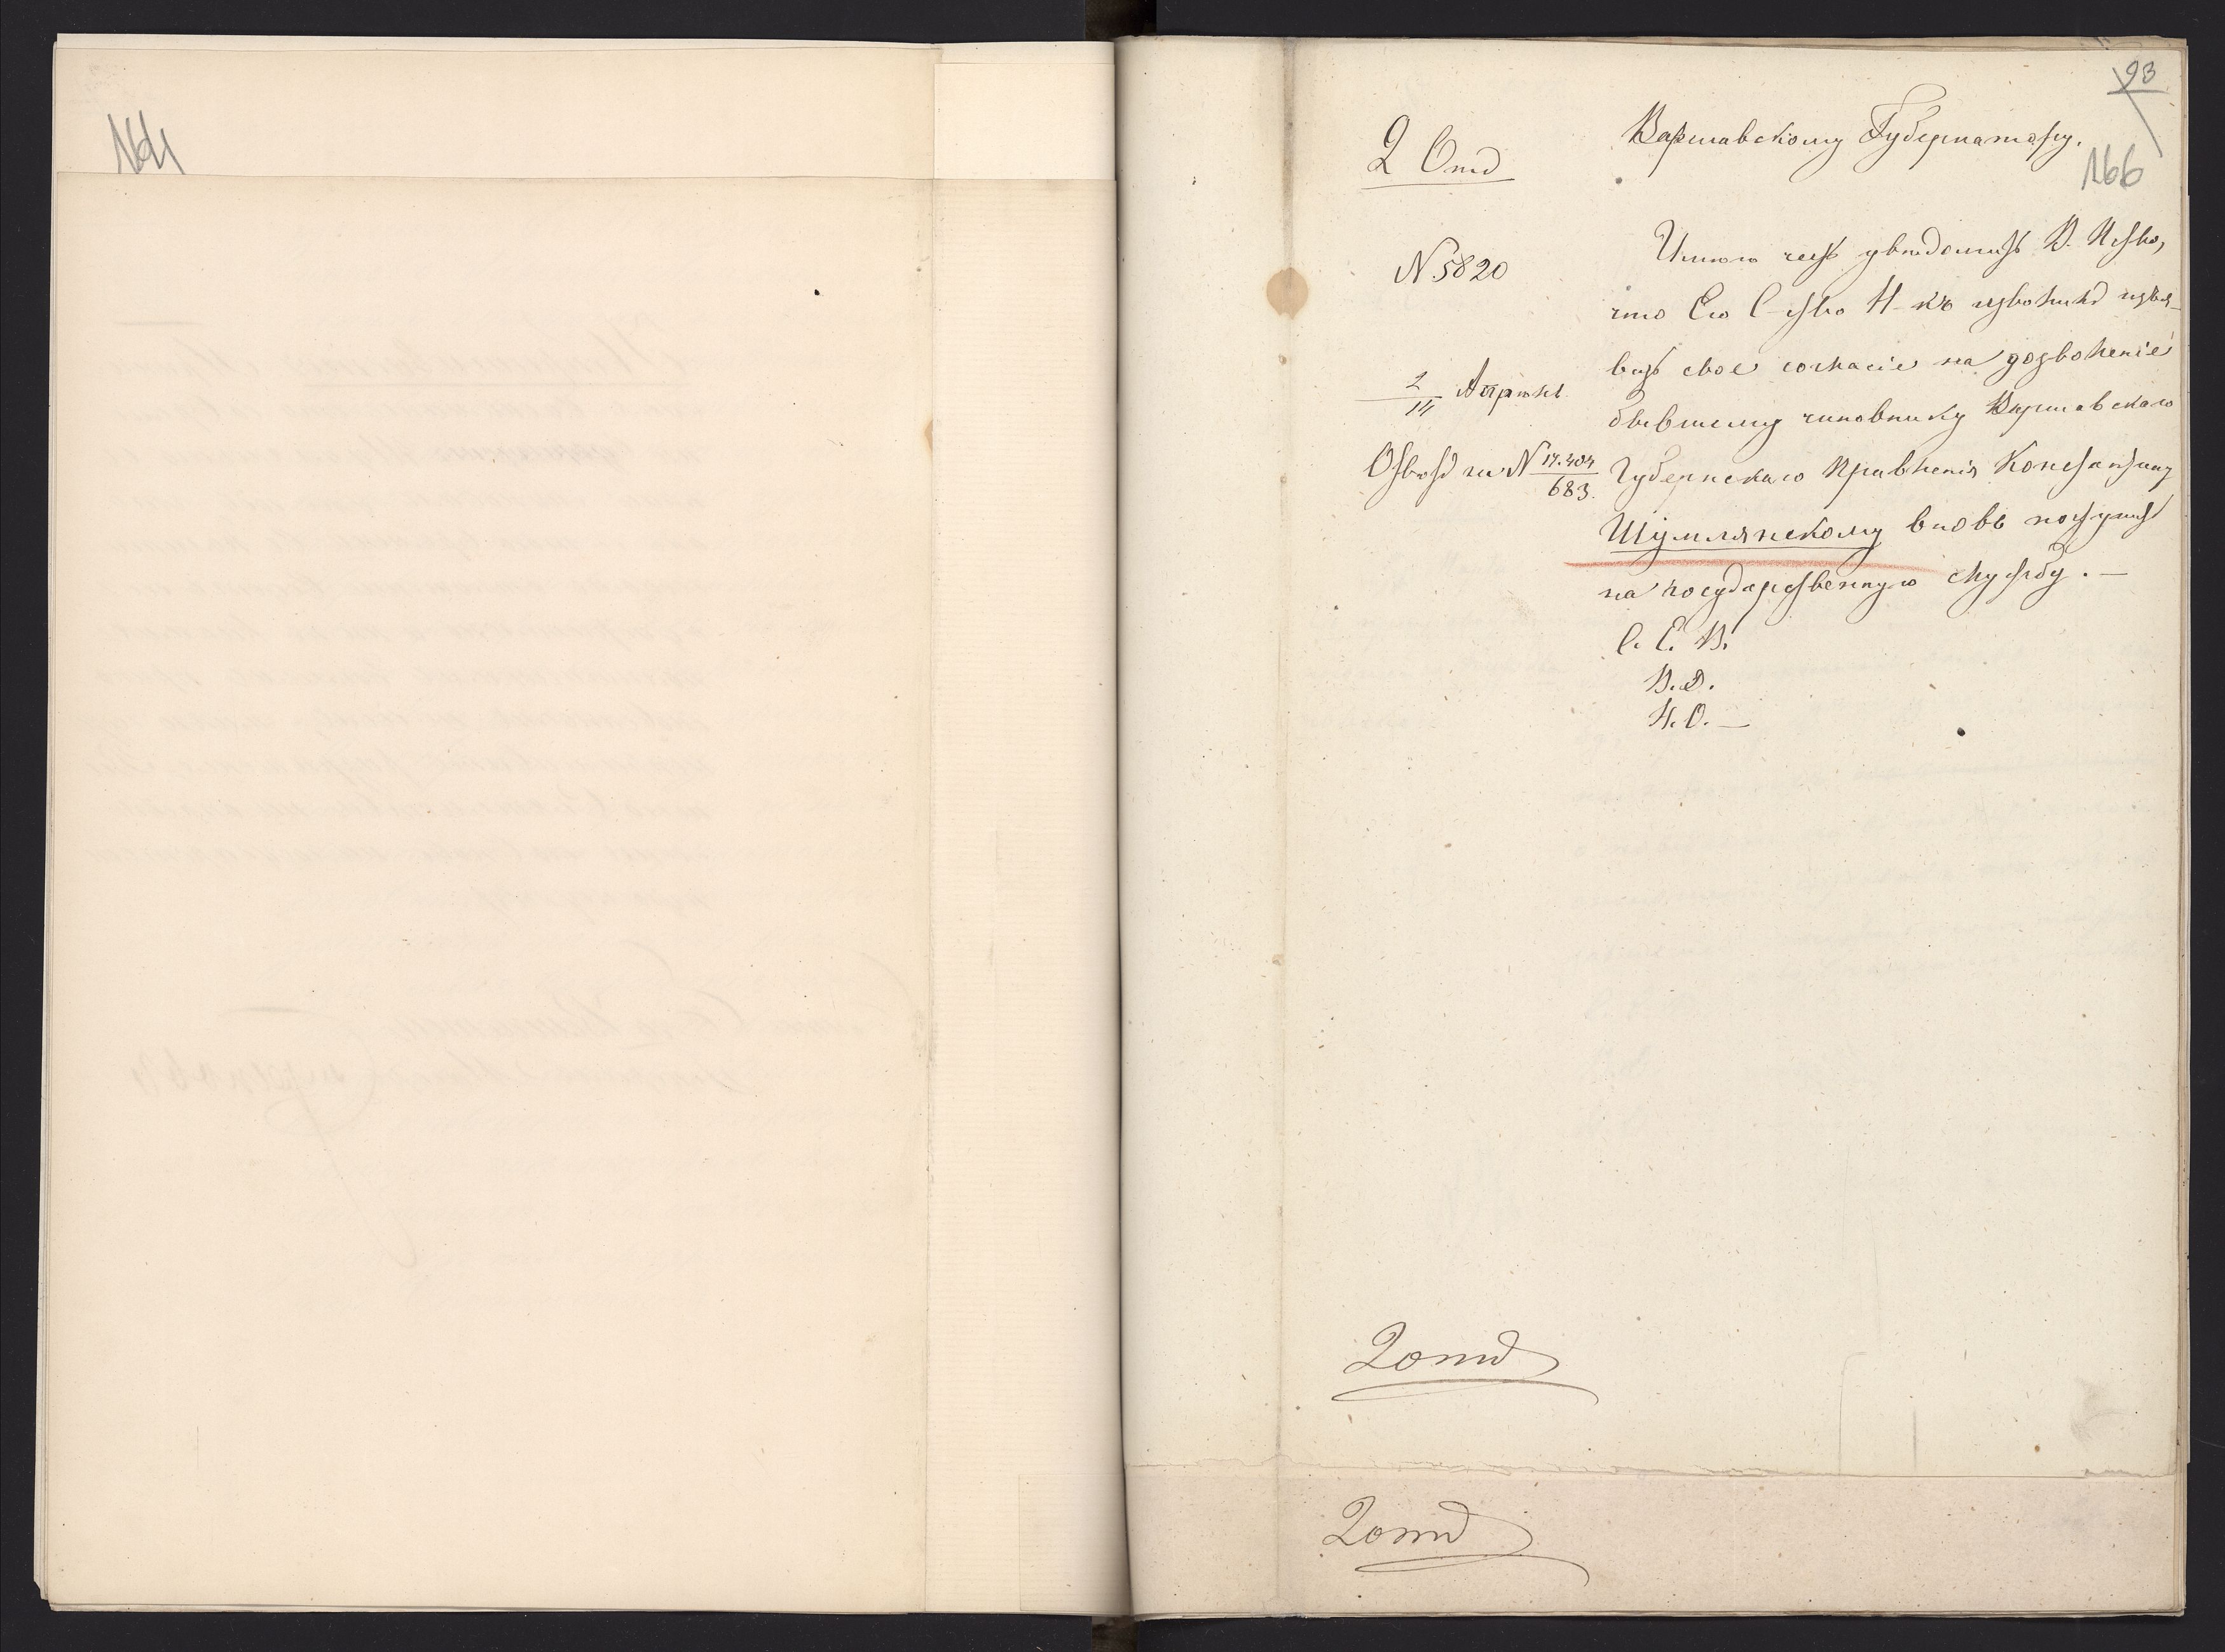 164
93
166
2 Отд
Варшавскому Губернатору.
N 5820
Имѣю честь увѣдомить В. П-ство,
что Его С-ство Н-къ изволилъ изъя-
вить свое согласіе на дозволеніе
2/14 Апрѣля
бывшему чиновнику Варшавскаго
Отвѣтъ на N 17.404/683.
Губернскаго Правленія Константину
Шумлянскому вновь поступить
на государственную службу. —
С. Е. В.
В. Д.
Н. О. —
2 отд
2 отд